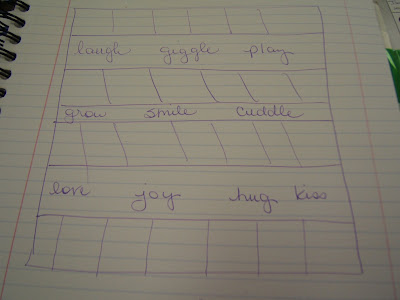 laugh giggle play
grow smile cuddle
love joy hug kiss